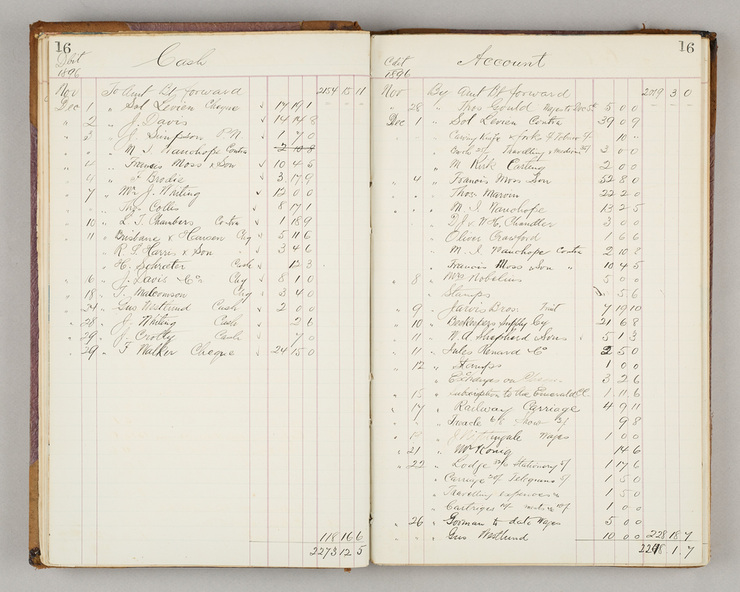 16
Debit Cash
1896
Nov To Amt Bt forward 2154 15 11
Dec 1 " Sol Levien Cheque 17 19 1
" 2 " J. Davis 14 14 8
" 3 " Simpson 1 7 0
" " M I Wanchope Contra 2 10 8
" 4 " Francis Moss & Son 10 4 5
" 4 " Brodie 3 17 9
" 7 " Mr J. Whiting 12 0 0
" " Colles 8 17 1
" 10 " L. T. Chambers Contra 1 18 9
" 11 " Brisbane & Hansen Chq 5 11 6
" R. L. Harris & Son 3 4 6
" H. Schroter Cash 12 3
" 16 " J. Davis & Co Chq 8 1 0
" 18 " Malcomson Chq 3 4 0
" 24 " Gus Westlund Cash 2 0 0
" 28 " J. Whiting Cash 2 6
" 29 " J. Crotty Cash 7 0
" 29 " F Walker Cheque 24 15 0
118 16 6
2273 12 5
16
Cdit Account
1896
Nov By Amt Bt forward 2019 3 0
" 28 " Thos Gould Wages to Dec 5th 5 0 0
Dec 1 " Sol Levien Contra 39 0 9
" 10
" Travelling & 3 0 0
" M Kirk Carting 2 0 0
" 4 " Francis Moss Son 52 8 0
" Thos Marom 22 2 0
" " M. I Wanchope 13 2 5
" Chandler 3 0 0
" Oliver Crawford 6 6
" M. I Wanchope Contra 2 10 8
" Francis Moss & Son " 10 4 5
" 8 " Mrs Robelius 5 0 0
" Stamps 5 6
" 9 " Jarvis Bros. Fruit 7 19 10
" 10 " Beekeepers Supply Cy 21 6 8
" 11 " W. A Shepherd Sons 5 1 3
" 11 " Jules Renard & Co 2 5 0
" 12 " Stamps 1 0 0
" Exchanges on 3 2 6
" 15 " Subscription to the 1 11 6
" 17 " Railway Carriage 4 9 11
" Treacle 9 8
" Nightingale Wages 1 0 0
" 21 " Mr König 14 6
" 22 " Lodge Stationery 1 17 6
" Carriage Telegrams 1 5 0
" Travelling expenses 1 5 0
" Cartridges 1 0 0
" 26 " Gorman to date Wages 5 0 0
" Gus Westlund 10 0 0 228 18 7
2248 1 7